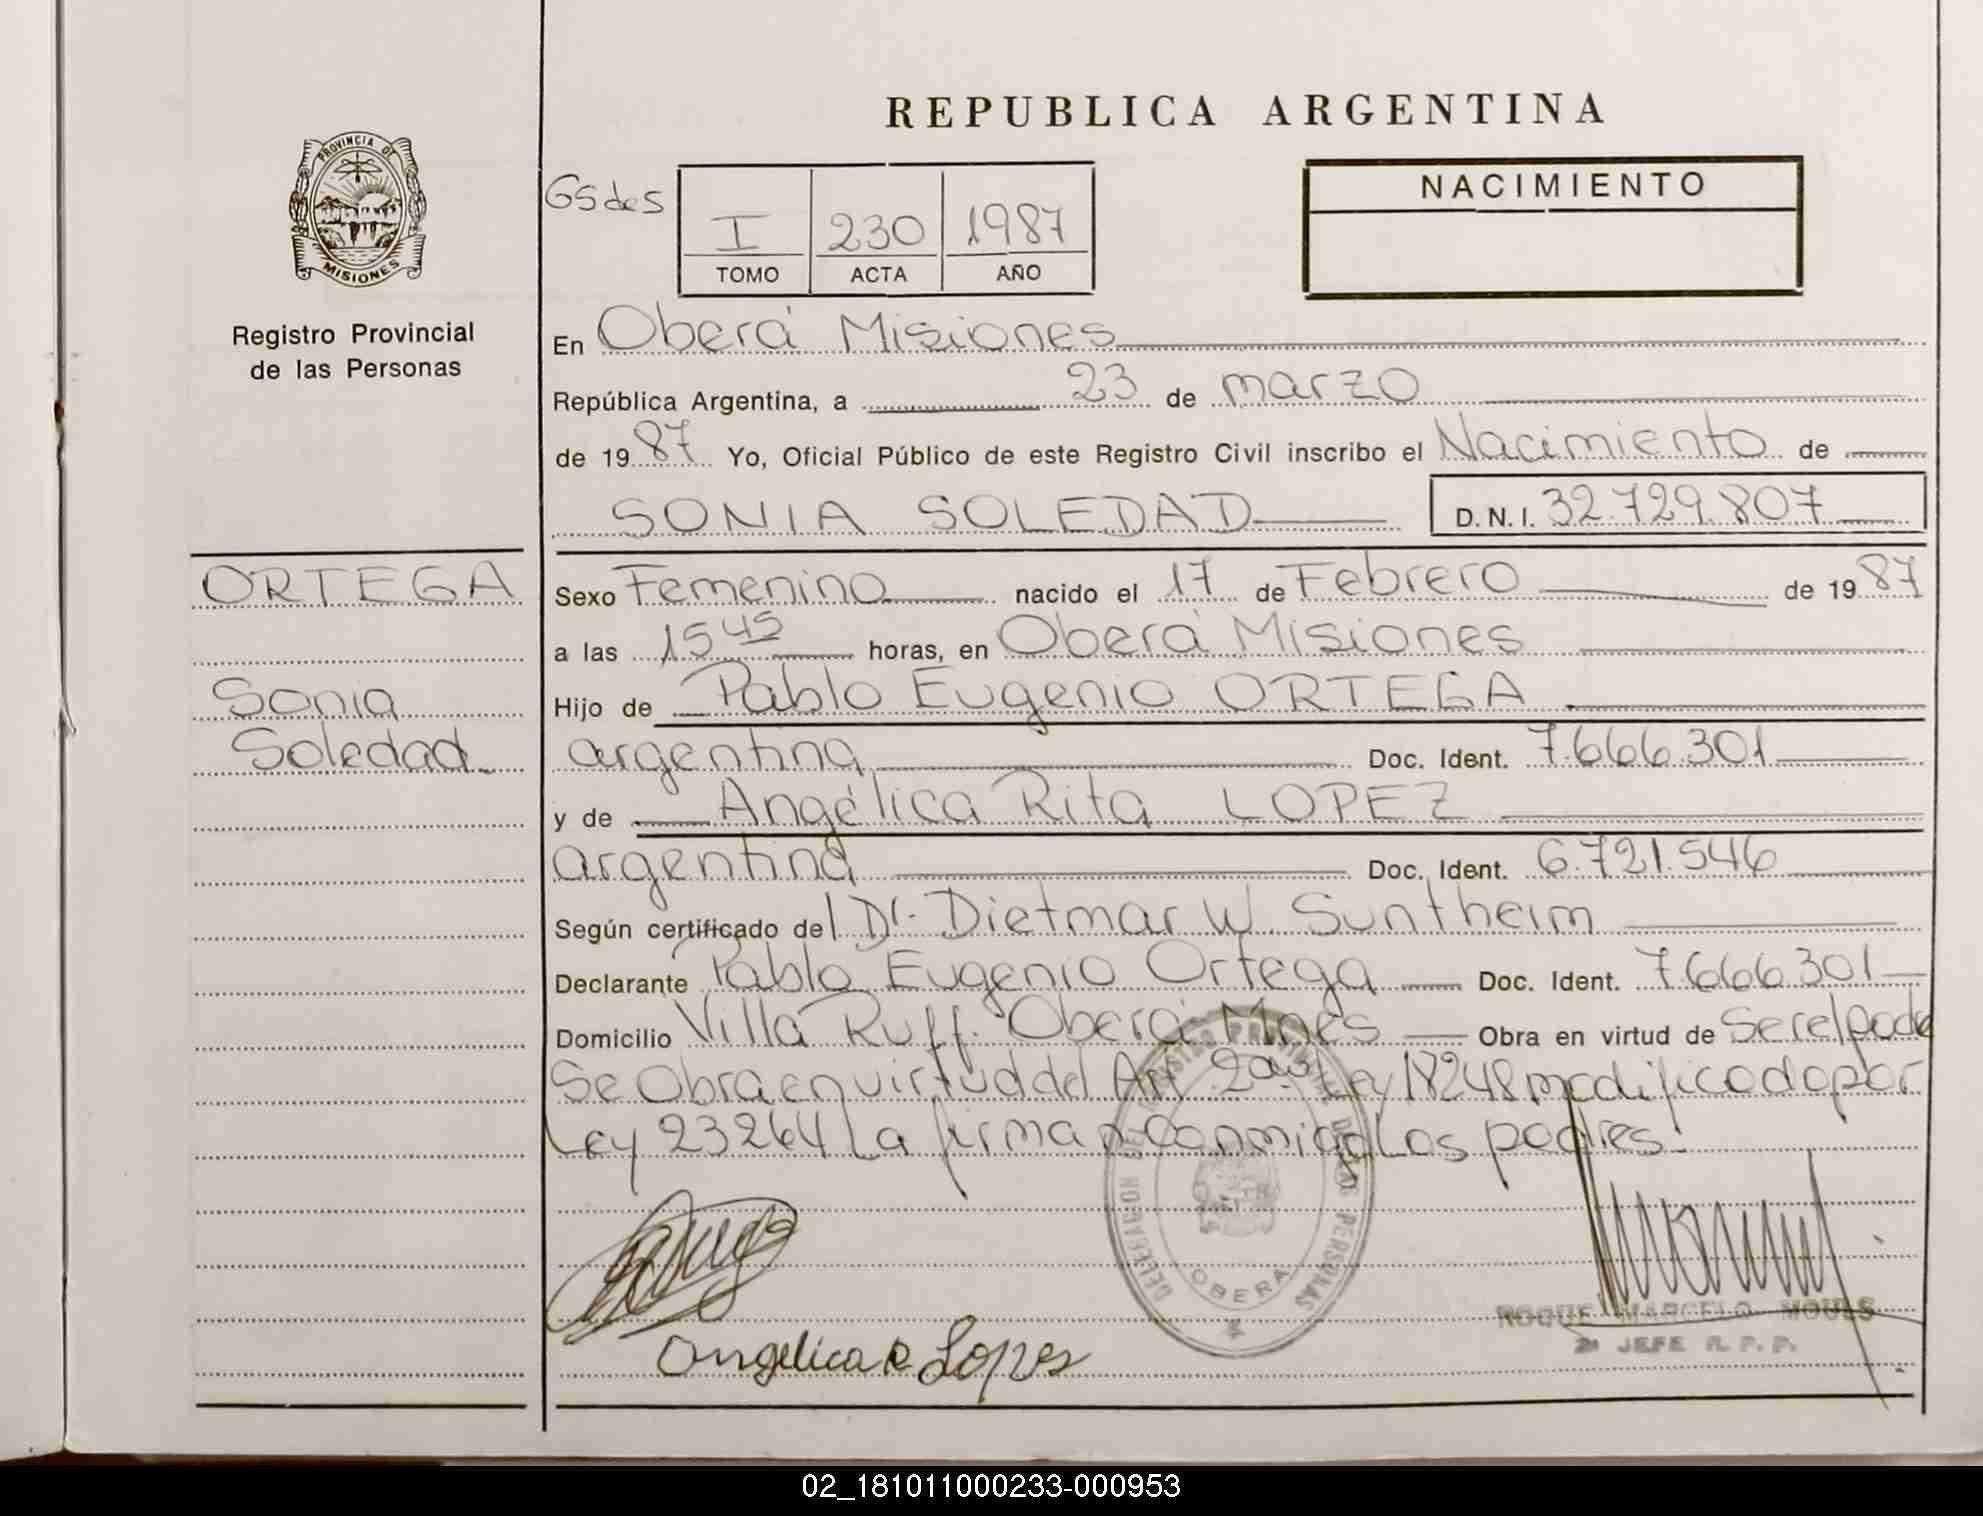 REPUBLICA ARGENTINA
PROVINCIA DE
MISIONES
Registro Provincial
de las Personas
I 230 1987
TOMO ACTA AÑO
NACIMIENTO
En Oberá Misiones
República Argentina, a 23 de marzo
de 1987 Yo, Oficial Público de este Registro Civil inscribo el Nacimiento de
SONIA SOLEDAD D.N.I. 32.729.807
ORTEGA
Sonia
Soledad
Sexo Femenino nacido el 17 de Febrero de 1987
a las 15 45 horas, en Oberá Misiones
Hijo de Pablo Eugenio ORTEGA
argentina Doc. Ident. 7.666.301
y de Angélica Rita LOPEZ
argentina Doc. Ident. 6.721.546
Según certificado del Dr. Dietmar W. Suntheim
Declarante Pablo Eugenio Ortega Doc. Ident. 7.666.301
Domicilio Villa Ruff. Oberá Mnes Obra en virtud de Ser el padre
Se Obra en virtud del Art 2do Ley 18248 modificado por
Ley 23264 La firman conmigo Los padres.
DELEGACION DEL REGISTRO PROVINCIAL DE LAS PERSONAS
OBERA
Angelica R Lopez
ROQUE MARCELO MOULS
2º JEFE R. P. P.
02_181011000233-000953